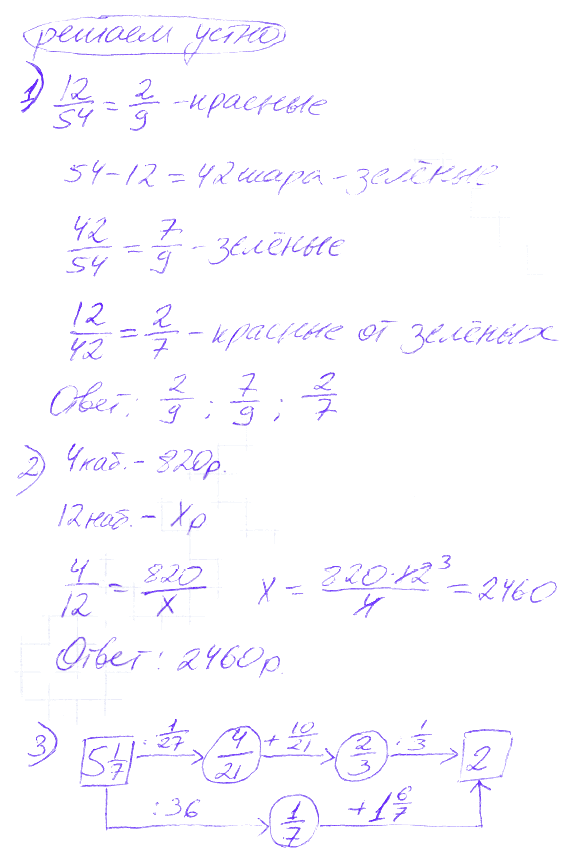 решаем устно
1) 12/54 = 2/9 - красные
54 - 12 = 42 шара - зелёные
42/54 = 7/9 - зелёные
12/42 = 2/7 - красные от зелёных
Ответ: 2/9 ; 7/9 ; 2/7
2) 4 наб. - 820р.
12 наб. - Xр
4/12 = 820/X X = 820·12 3/4 = 2460
Ответ: 2460р.
3) 5 1/7 : 1/27 4/21 + 10/21 2/3 : 1/3 2
: 36 1/7 + 1 6/7